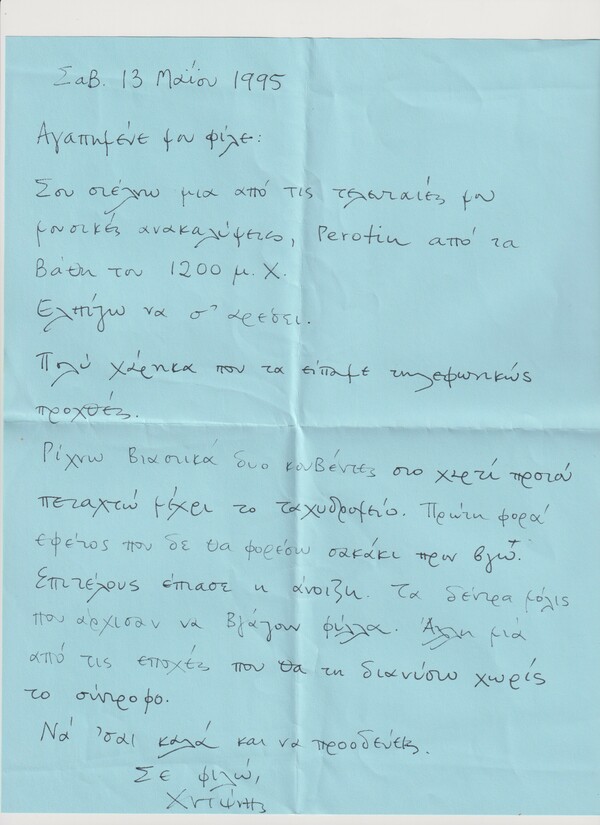 Σαβ. 13 Μαΐου 1995
Αγαπημένε μου φίλε:
Σου στέλνω μια από τις τελευταίες μου
μουσικές ανακαλύψεις, Perotin από τα
βάθη του 1200 μ.Χ.
Ελπίζω να σ' αρέσει.
Πολύ χάρηκα που τα είπαμε τηλεφωνικώς
προχθές.
Ρίχνω βιαστικά δυο κουβέντες στο χαρτί προτού
πεταχτώ μέχρι το ταχυδρομείο. Πρώτη φορά
εφέτος που δε θα φορέσω σακάκι πριν βγω.
Επιτέλους έπιασε η άνοιξη. Τα δέντρα μόλις
που άρχισαν να βγάζουν φύλλα. Άλλη μιά
από τις εποχές που θα τη διανύσω χωρίς
το σύντροφο.
Νά 'σαι καλά και να προοδεύεις.
Σε φιλώ,